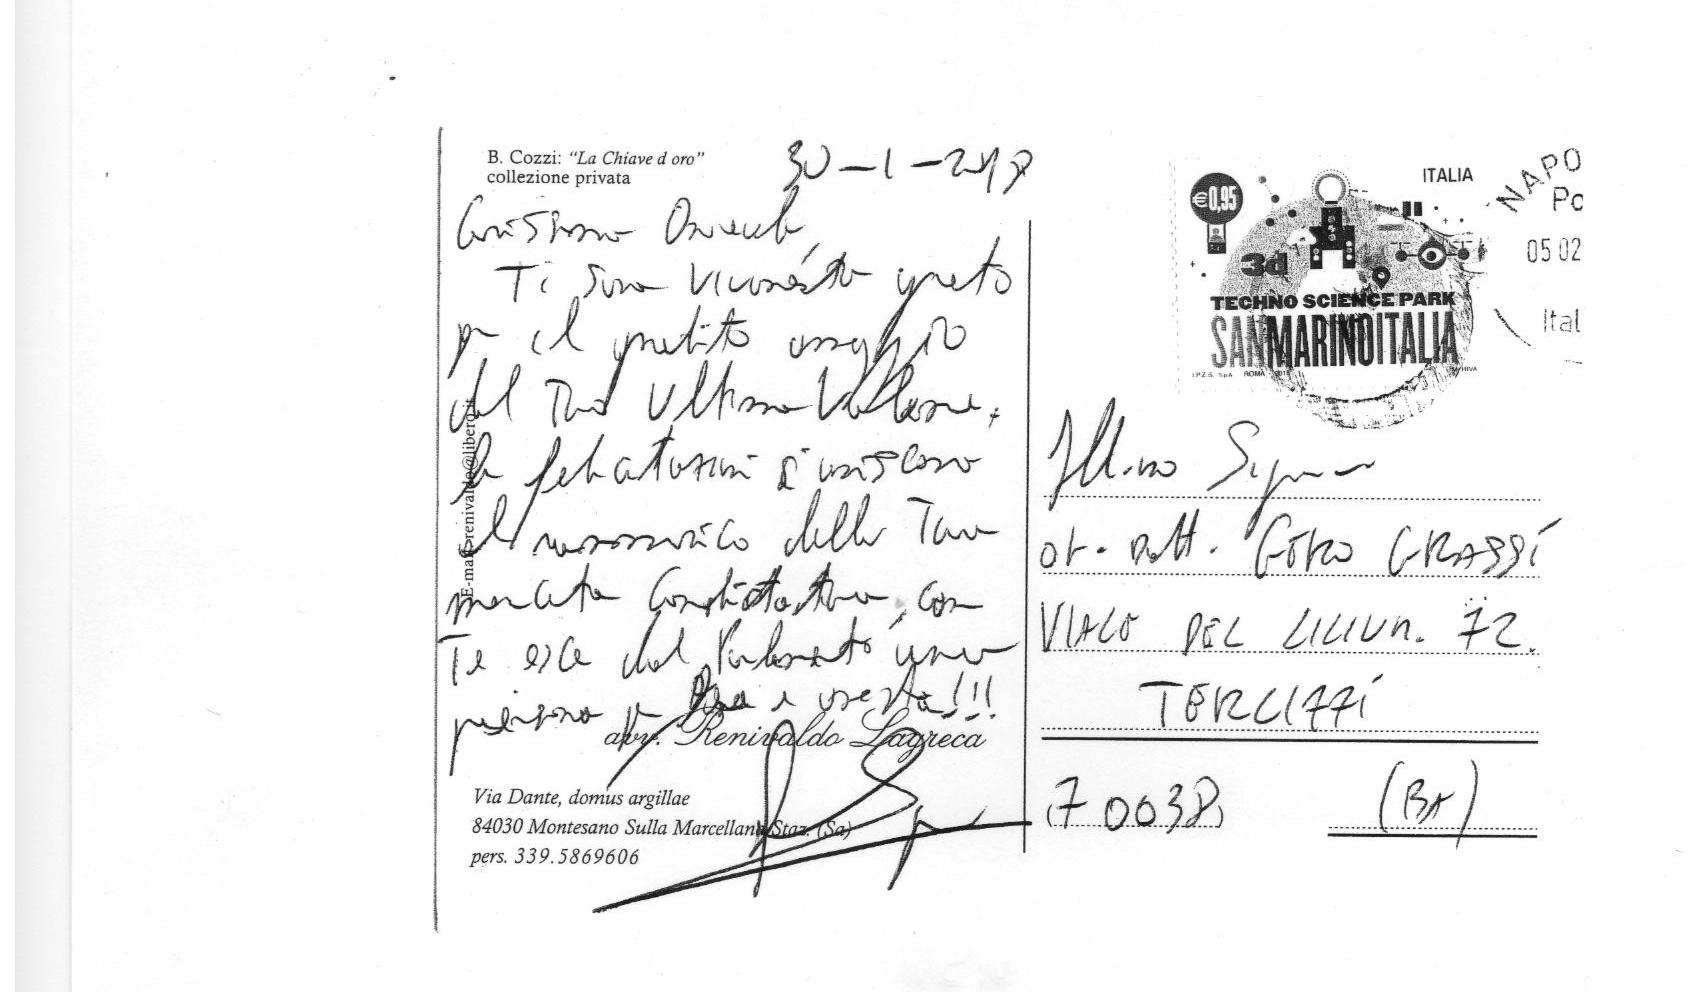 B. Cozzi: "La Chiave d oro"
collezione privata
30-1-2018
Carissimo Onorevole,
Ti sono vivamente grato
per il gradito omaggio
del Tuo Ultimo Volume,
le felicitazioni si uniscono
al rammarico della Tua
mancata Candidatura, con
Te esce dal Parlamento una
persona per bene e onesta!!!
avv. Renivaldo Lagreca
Via Dante, domus argillae
84030 Montesano Sulla Marcellana Staz. (Sa)
pers. 339.5869606
E-mail: renivaldo@libero.it
€0,95
ITALIA
3d
TECHNO SCIENCE PARK
SANMARINOITALIA
I.P.Z.S. SpA ROMA
NAPO
Po
05 02
Ital
Ill.mo Signor
on. Dott. GERO GRASSI
VIALE DEL LILIUM. 72.
TERLIZZI
70038 (BA)